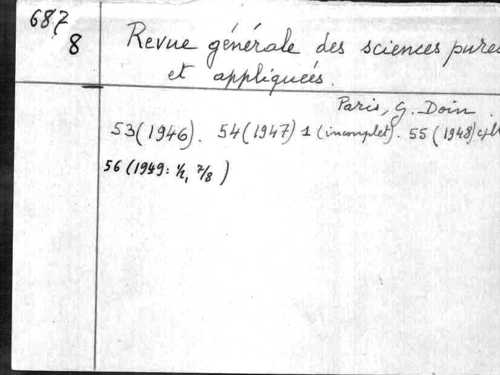 687
8
Revue générale des sciences pures
et appliquées.
Paris, G. Doin.
53 (1946). 54 (1947) 1 (incomplet). 55 (1948)
56 (1949: 1/2, 7/8)